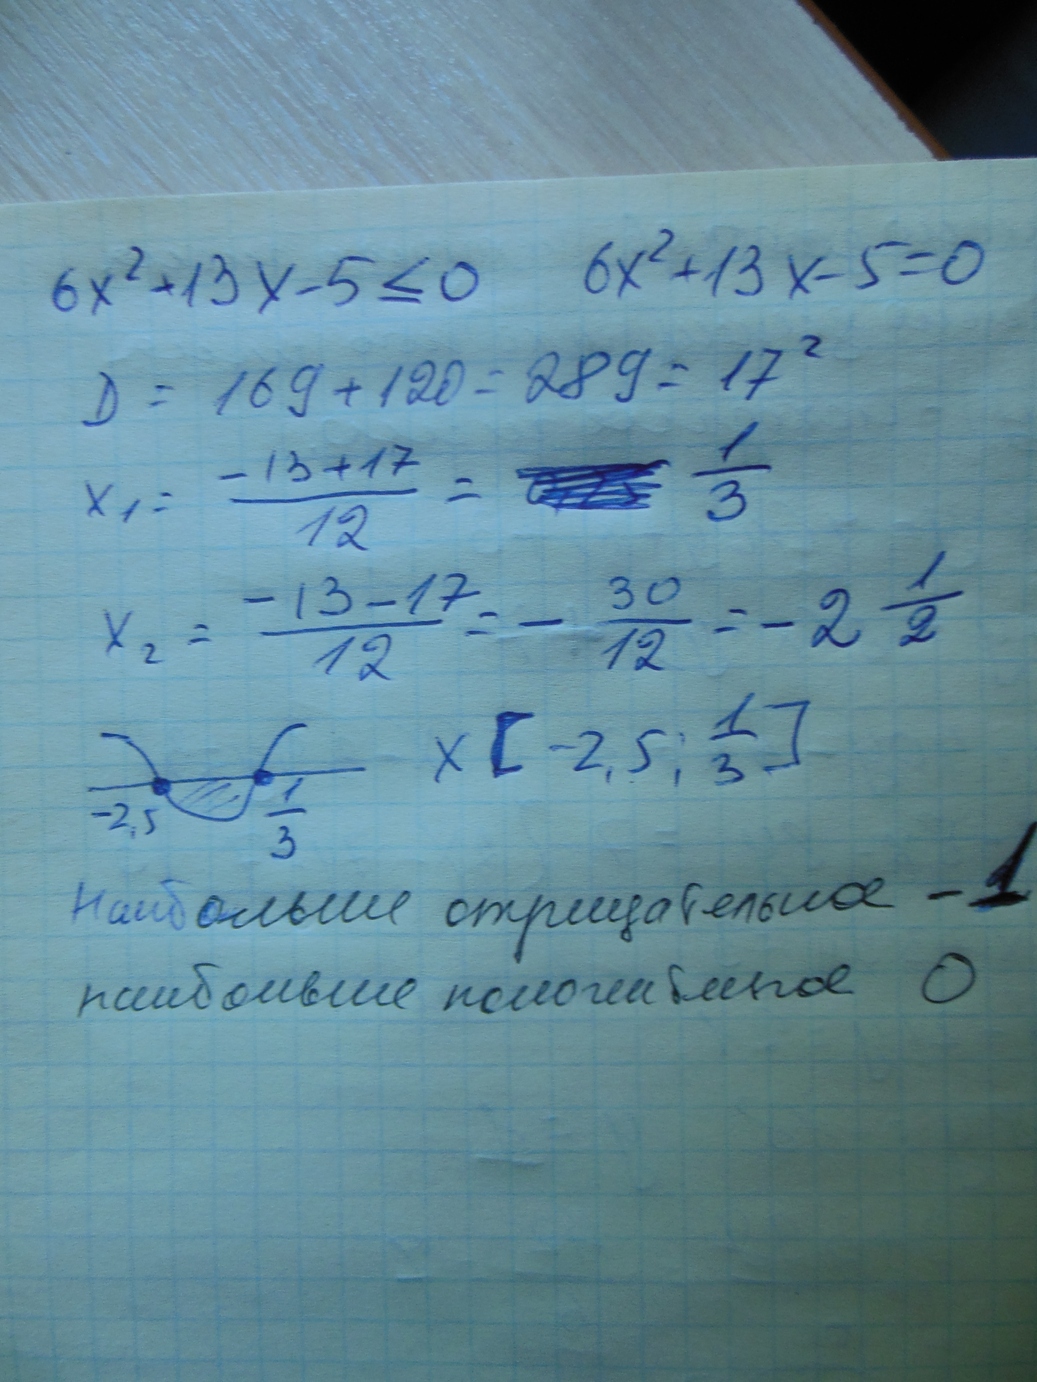 6x²+13x-5≤0 6x²+13x-5=0
D = 169+120=289=17²
x₁= (-13+17)/12 = 1/3
x₂ = (-13-17)/12 = - 30/12 = -2 1/2
-2,5 1/3 x [-2,5; 1/3]
Наибольшие отрицательное -1
наибольшие положительное 0